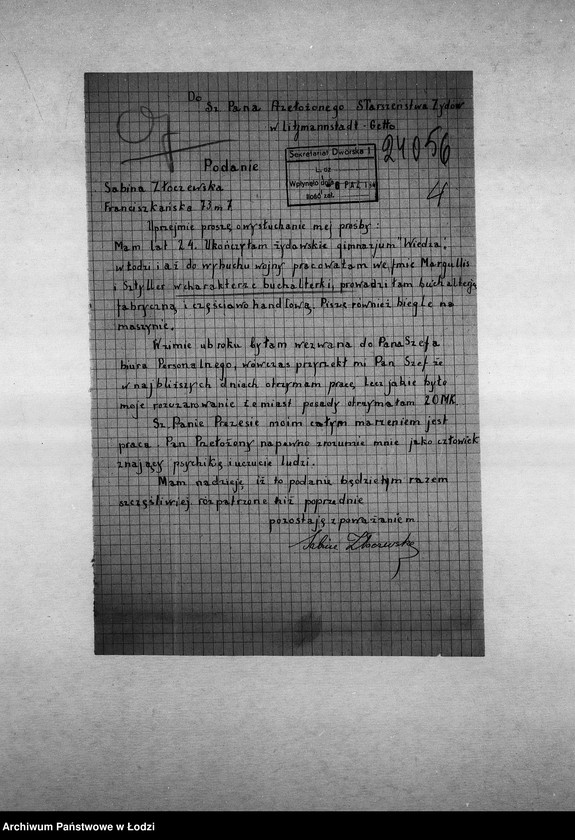 Do
Sz. Pana Przełożonego Starszeństwa Żydów
w Litzmannstadt-Getto
24056
Sekretariat Dworska 1
L. dz.
Wpłynęło dnia 8 PAŹ. 194
Ilość zał.
4
Podanie
Sabina Złoczewska
Franciszkańska 73 m 7
Uprzejmie proszę o wysłuchanie mej prośby:
Mam lat 24. Ukończyłam żydowskie gimnazjum "Wiedza",
w Łodzi i aż do wybuchu wojny pracowałam we fmie Margullis
i Sztyller w charakterze buchalterki, prowadziłam buchalterję
fabryczną i częściowo handlową. Piszę również biegle na
maszynie.
W zimie ub roku byłam wezwana do Pana Szefa
biura Personalnego, wówczas przyrzekł mi Pan Szef że
w najbliższych dniach otrzymam pracę, Lecz jakie było
moje rozczarowanie że miast posady otrzymałam 20 MK.
Sz. Panie Prezesie moim całym marzeniem jest
praca. Pan Przełożony napewno zrozumie mnie jako człowiek
znający psychikę i uczucie ludzi.
Mam nadzieję, iż to podanie będzie tym razem
szczęśliwiej rozpatrzone niż poprzednie
pozostaję z poważaniem
Sabina Złoczewska
Archiwum Państwowe w Łodzi